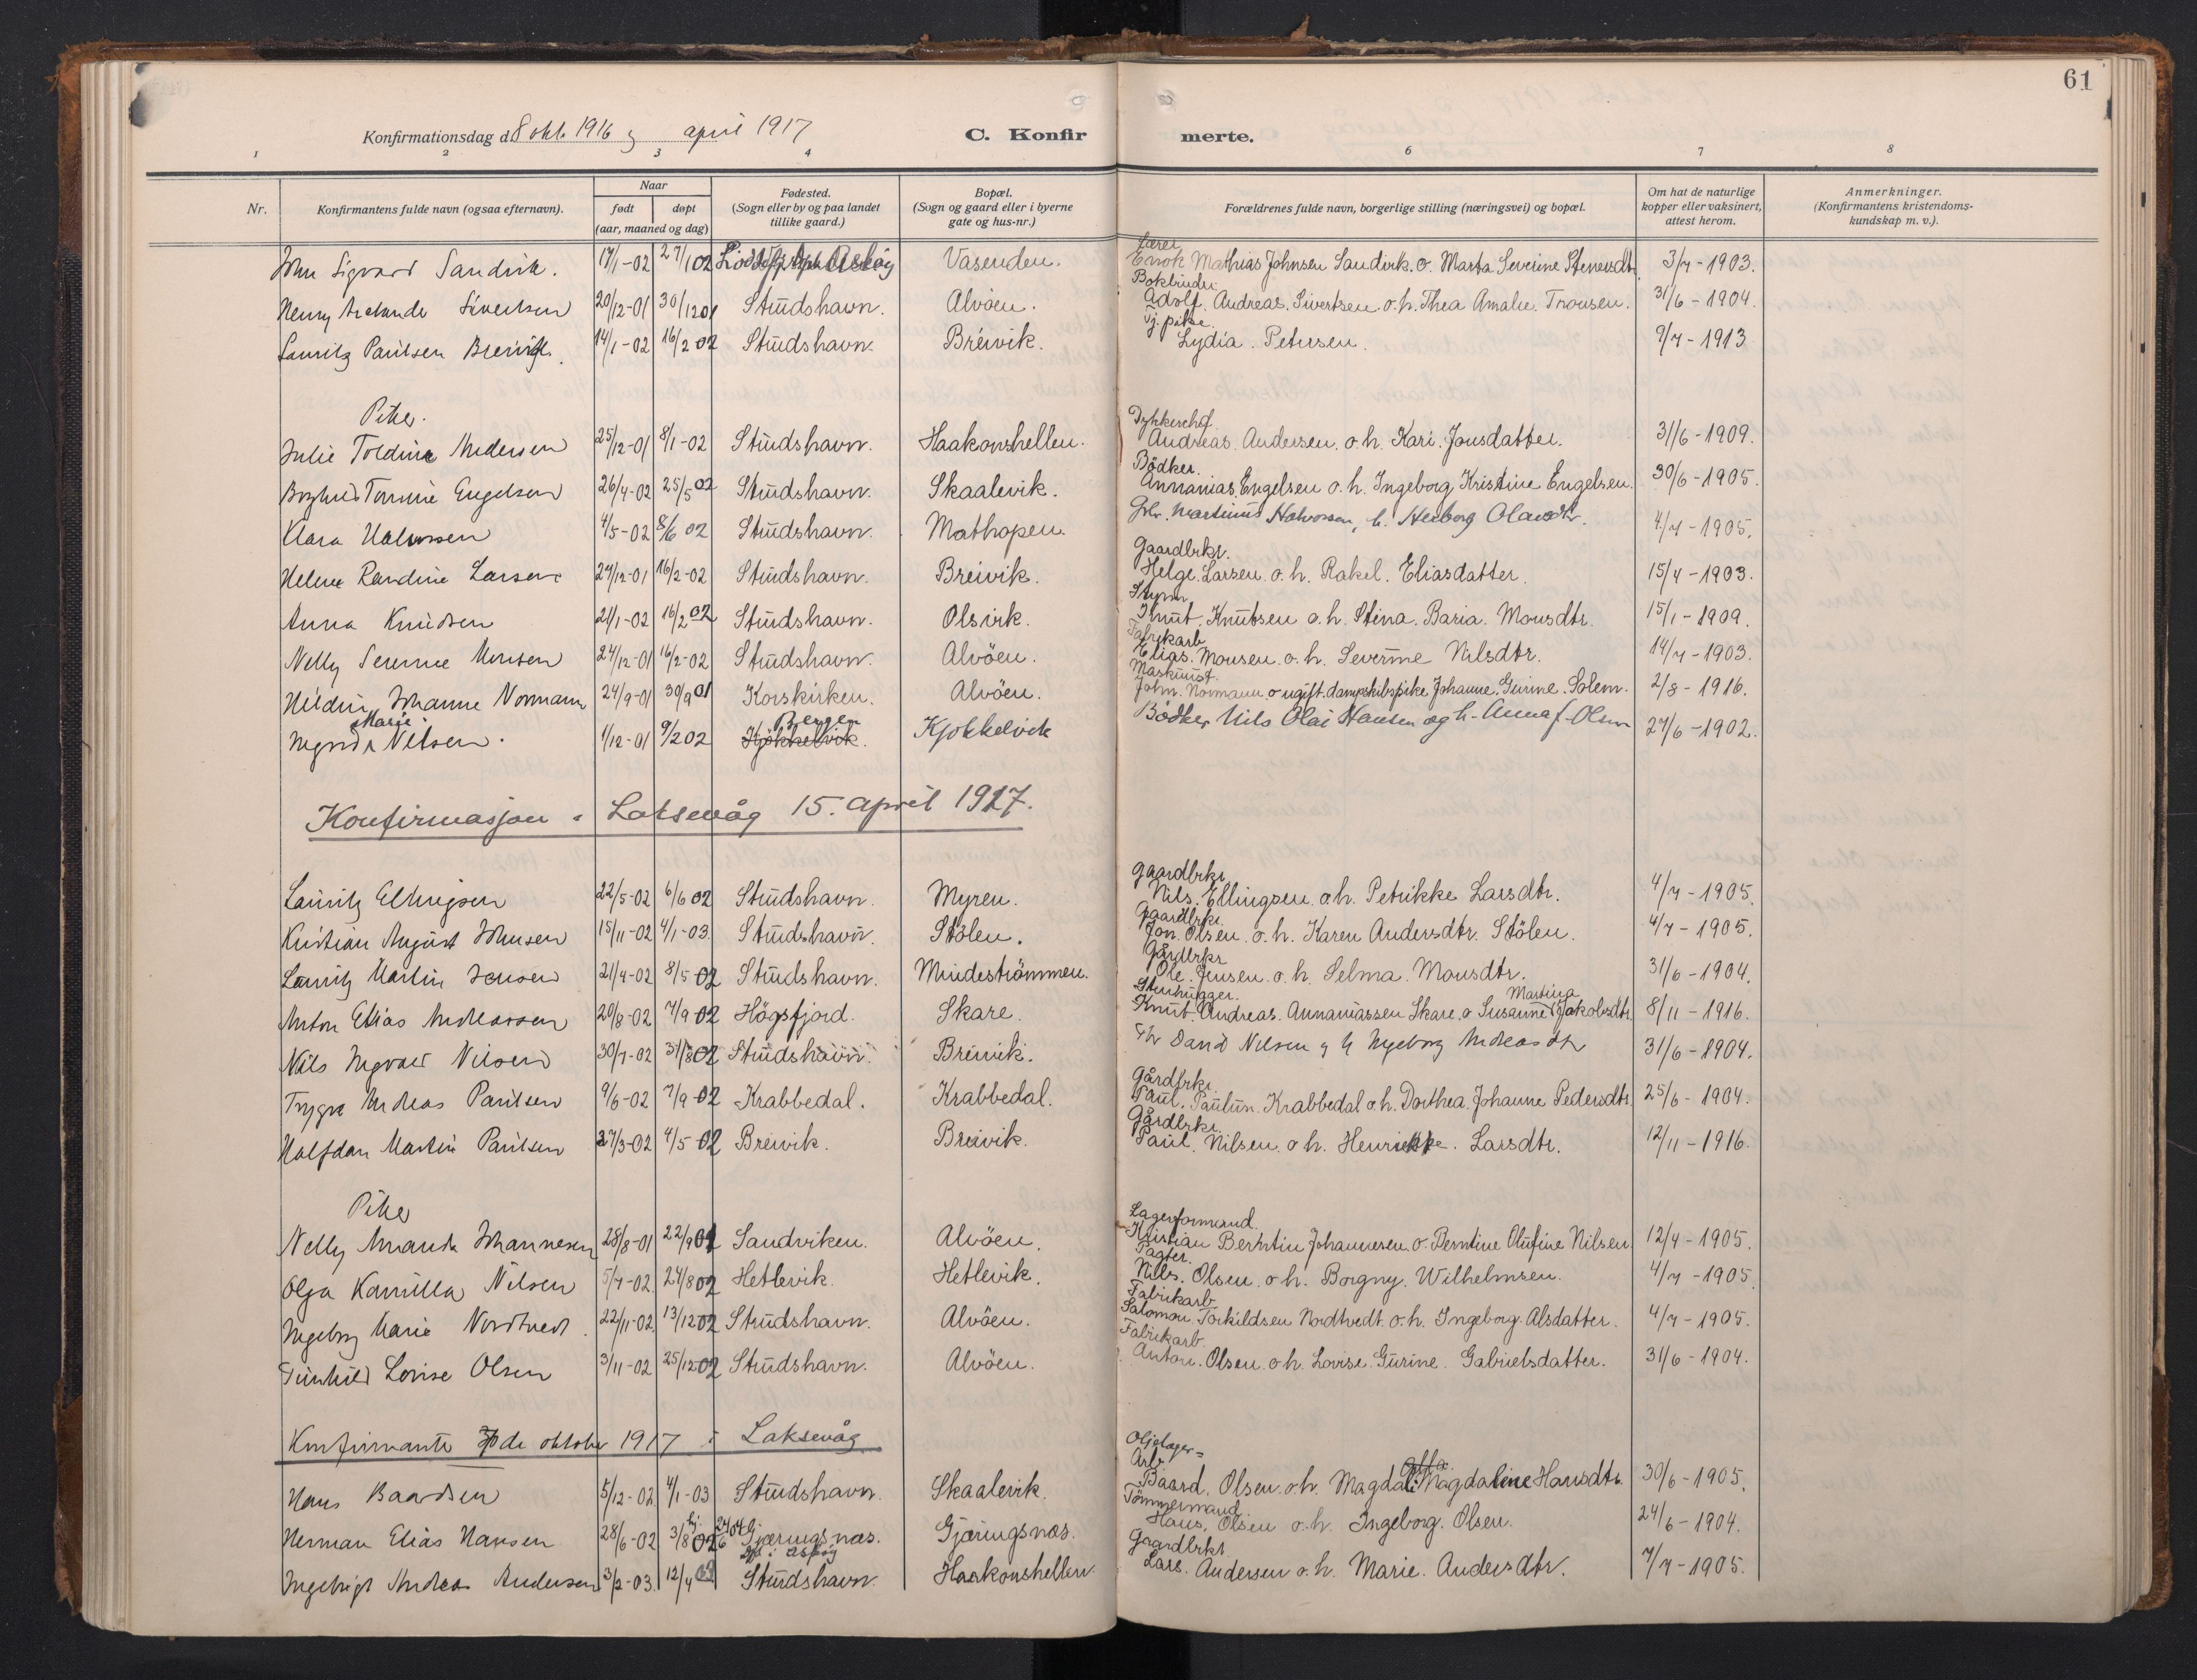 61
Konfirmationsdag d. 8 okt. 1916 og april 1917
C. Konfirmerte.
1 2 3 4 6 7 8
Nr.
Konfirmantens fulde navn (ogsaa efternavn).
Naar
født
døpt
(aar, maaned og dag)
Fødested.
(Sogn eller by og paa landet
tillike gaard.)
Bopæl.
(Sogn og gaard eller i byerne
gate og hus-nr.)
Forældrenes fulde navn, borgerlige stilling (næringsvei) og bopæl.
Om hat de naturlige
kopper eller vaksinert,
attest herom.
Anmerkninger.
(Konfirmantens kristendoms-
kundskap m. v.).
Sigvard Sandvik. 17/1-02 27/1 02 Vasenden. Enok Mathias Johnsen Sandvik. o. Marta Severine Stenersdt. 3/7-1903.
Henny Sivertsen 20/12-01 30/12 01 Studshavn. Alvöen. Bokbinder. Adolf. Andreas. Sivertsen. o. h. Thea Amalie. 31/6-1904.
Lauritz Paulsen Breivik. 14/1-02 16/2 02 Studshavn. Breivik. Uj. pike. Lydia. Petersen. 9/7-1913
Piker.
Julie Toldine Andersen 25/12-01 8/1-02 Studshavn. Haakonshellen. Andreas. Andersen. o. h. Kari. Jonsdatter. 31/6-1909.
Engelsen 26/4-02 25/5 02 Studshavn. Skaalevik. Bödker. Annanias. Engelsen o. h. Ingeborg Kristine Engelsen. 30/6-1905.
Klara Halvorsen 4/5-02 8/6 02 Studshavn. Mathopen. Martinus Halvorsen, h. Herborg Olavsdtr. 4/7-1905.
Helene Randine Larsen 27/12-01 16/2-02 Studshavn. Breivik. Gaardbrkr. Helge. Larsen. o. h. Rakel. Eliasdatter. 15/4-1903.
Anna Knudsen 21/1-02 16/2 02 Studshavn. Olsvik. Styrm. Knut. Knutsen o. h. Stina. Baria. Monsdtr. 15/1-1909.
Nelly Severine Monsen 24/12-01 16/2-02 Studshavn. Alvöen. Fabrikarb. Elias. Monsen. o. h. Severine Nilsdtr. 14/7-1903.
Johanne Normann 24/9-01 30/9 01 Korskirken. Alvöen. Maskinist. John. Normann o ugift. dampskibspike Johanne. Gurine. Solem. 2/8-1916.
Ingrid Marie Nilsen. 1/12-01 9/2 02 Kjökkelvik. Bergen Kjökkelvik Bödker Nils Olai Hansen og h. Anna f. Olsen 27/6-1902.
Konfirmasjon i Laksevåg 15. april 1917.
Lauritz Ellingsen 22/5-02 6/6 02 Studshavn. Myren. Gaardbrkr. Nils. Ellingsen. o. h. Petrikke Larsdtr. 4/7-1905.
Kristian August Johnsen 15/11-02 4/1-03. Studshavn. Stölen. Gaardbrkr. Jon. Olsen. o. h. Karen Andersdtr. Stölen. 4/7-1905.
Lauritz Martin Jensen 21/4-02 8/5 02 Studshavn. Mindeströmmen. Gårdbrkr. Ole. Jensen. o. h. Selma. Monsdtr. 31/6-1904.
Anton Elias Andreassen 20/8-02 7/9 02 Högsfjord. Skare. Stenhugger. Knut. Andreas. Annaniassen Skare. o Susanne Martina Jakobsdtr. 8/11-1916.
Nils Ingvald Nilsen 30/7-02 31/8 02 Studshavn. Breivik. David Nilsen og h Ingeborg Andreasdtr 31/6-1904.
Trygve Andreas Paulsen 9/6-02 7/9-02 Krabbedal. Krabbedal. Gårdbrkr. Paul. Paulsen. Krabbedal o. h. Dorthea. Johanne Pedersdtr. 25/6-1904.
Halfdan Martin Paulsen 27/3-02 4/5-02 Breivik. Breivik. Gårdbrkr. Paul. Nilsen. o. h. Henrikke. Larsdtr. 12/11-1916.
Piker
Nelly Amanda Johannesen 28/8-01 22/9 01 Sandviken. Alvöen. Lagerformand. Kristian Berntin Johannesen. o. Berntine Olufine Nilsen. 12/4-1905.
Olga Kamilla Nilsen 5/7-02. 24/8 02 Hetlevik. Hetlevik. Pagter. Nils. Olsen. o h. Borgny. Wilhelmsen. 4/7-1905.
Ingeborg Marie Nordtvedt. 22/11-02. 13/12 02 Studshavn. Alvöen. Fabrikarb. Salomon. Torkildsen Nordtvedt. o. h. Ingeborg. Alsdatter. 4/7-1905.
Lovise Olsen 3/11-02 25/12-02 Studshavn. Alvöen. Fabrikarb. Anton. Olsen. o h. Lovise. Gurine. Gabrielsdatter. 31/6-1904.
Konfirmante de oktober 1917 i Laksevåg
Hans Baardsen 5/12-02 4/1-03 Studshavn. Skaalevik. Oljelager-Arb. Baard. Olsen. o. h. Magdaline Hansdtr. 30/6-1905.
Herman Elias Hansen 28/6-02 3/8 02 Gjæringsnæs. Gjæringsnæs. Tömmermand Hans. Olsen o. h. Ingeborg. Olsen. 24/6-1904.
Ingebrigt Andreas Andersen 3/2-03. 12/4 03 Studshavn. Haakonshellen. Gaardbrkr. Lars. Andersen o. h. Marie. Andersdtr. 7/7-1905.